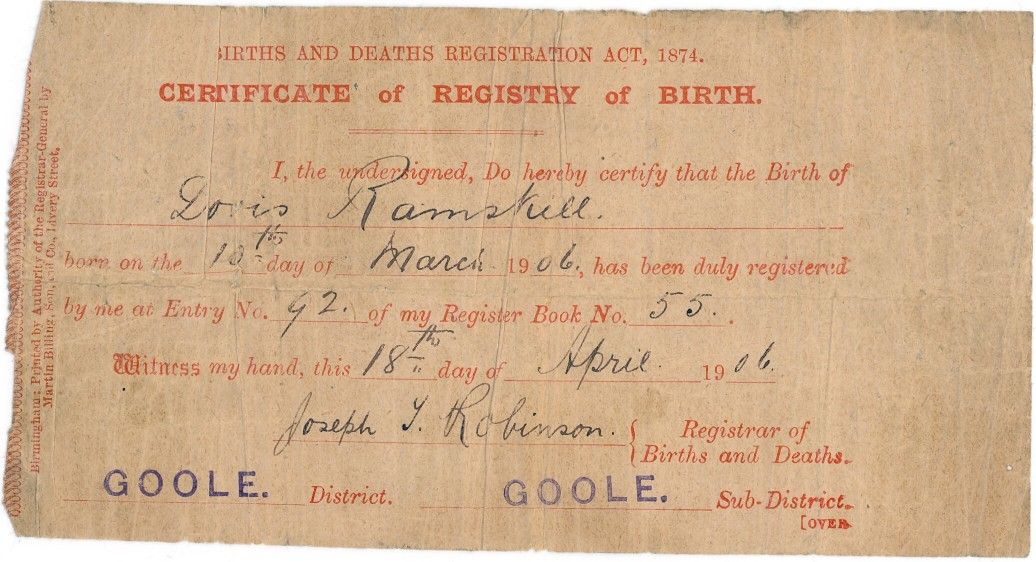 BIRTHS AND DEATHS REGISTRATION ACT, 1874.
CERTIFICATE of REGISTRY of BIRTH.
I, the undersigned, Do hereby certify that the Birth of
Doris Ramskill.
born on the 10th day of March 1906, has been duly registered
by me at Entry No. 92. of my Register Book No. 55.
Witness my hand, this 18th day of April. 1906.
Joseph T. Robinson. { Registrar of
Births and Deaths.
GOOLE. District. GOOLE. Sub-District.
[OVER
Birmingham: Printed by Authority of the Registrar-General by
Martin Billing, Son, and Co., Livery Street.